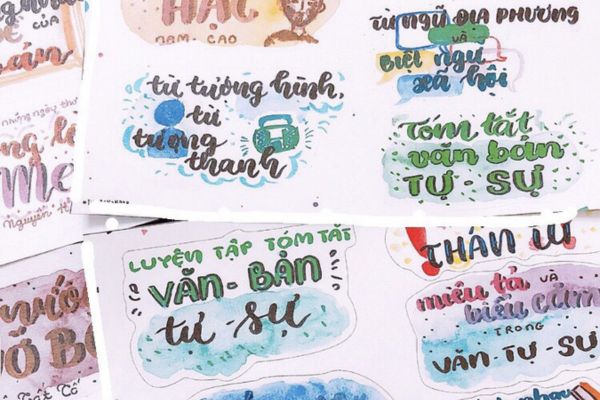 CỦA
HẠC
NAM - CAO
TỪ NGỮ ĐỊA PHƯƠNG
VÀ
BIỆT NGỮ
XÃ HỘI
từ tượng hình,
từ
tượng
thanh
Tóm tắt
văn bản
TỰ - SỰ
những ngày thơ
Mẹ
Nguyên H
LUYỆN TẬP TÓM TẮT
VĂN - BẢN
tự - sự
THÁN TỪ
miêu tả VÀ
biểu cảm
TRONG
VĂN - TỰ - SỰ
Tất Tố